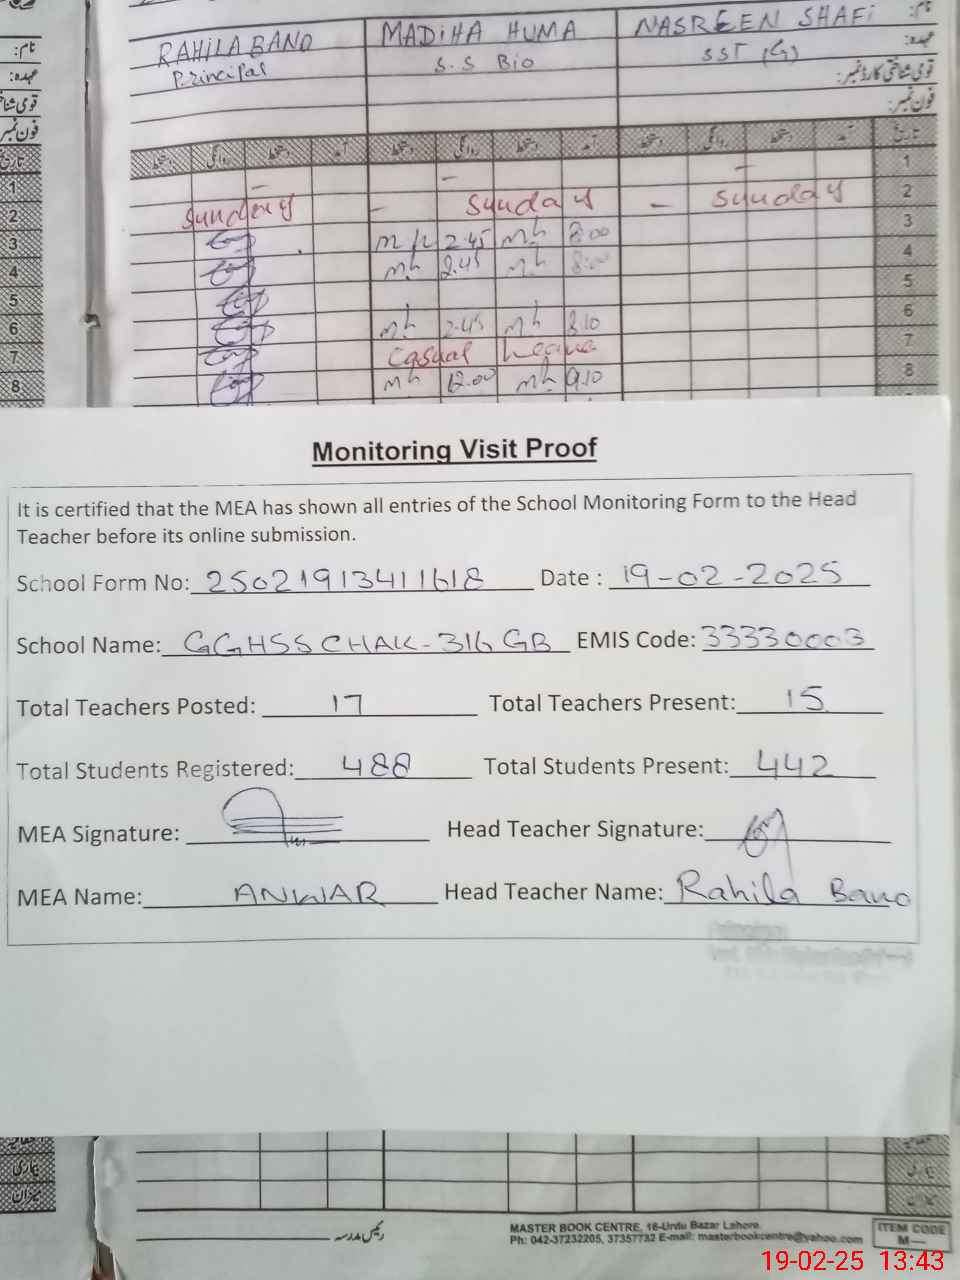 نام:
RAHILA BANO MADIHA HUMA NASREEN SHAFI نام:
عہدہ:
Principal S.S Bio SST (G) عہدہ:
قومی شناختی کارڈ نمبر:
فون نمبر
فون نمبر:
تاریخ
دستخط روانگی دستخط آمد دستخط روانگی دستخط آمد دستخط روانگی دستخط آمد تاریخ
1 - - - 1
2 Sunday - Sunday - Sunday 2
3 2.45 mh 8.00 3
4 mh 2.45 mh 8:00 4
5 5
6 mh 2.45 mh 8.10 6
7 Casual leave 7
8 mh 12.00 mh 9.10 8
Monitoring Visit Proof
It is certified that the MEA has shown all entries of the School Monitoring Form to the Head
Teacher before its online submission.
School Form No: 25021913411618 Date : 19-02-2025
School Name: GGHSS CHAK-316 GB EMIS Code: 33330003
Total Teachers Posted: 17 Total Teachers Present: 15
Total Students Registered: 488 Total Students Present: 442
MEA Signature: Head Teacher Signature:
MEA Name: ANWAR Head Teacher Name: Rahila Bano
بیماری
میزان
رئیس مدرسہ
MASTER BOOK CENTRE, 16-Urdu Bazar Lahore.
Ph: 042-37232205, 37357732 E-mail: masterbookcentre@yahoo.com
ITEM CODE
M—
19-02-25 13:43